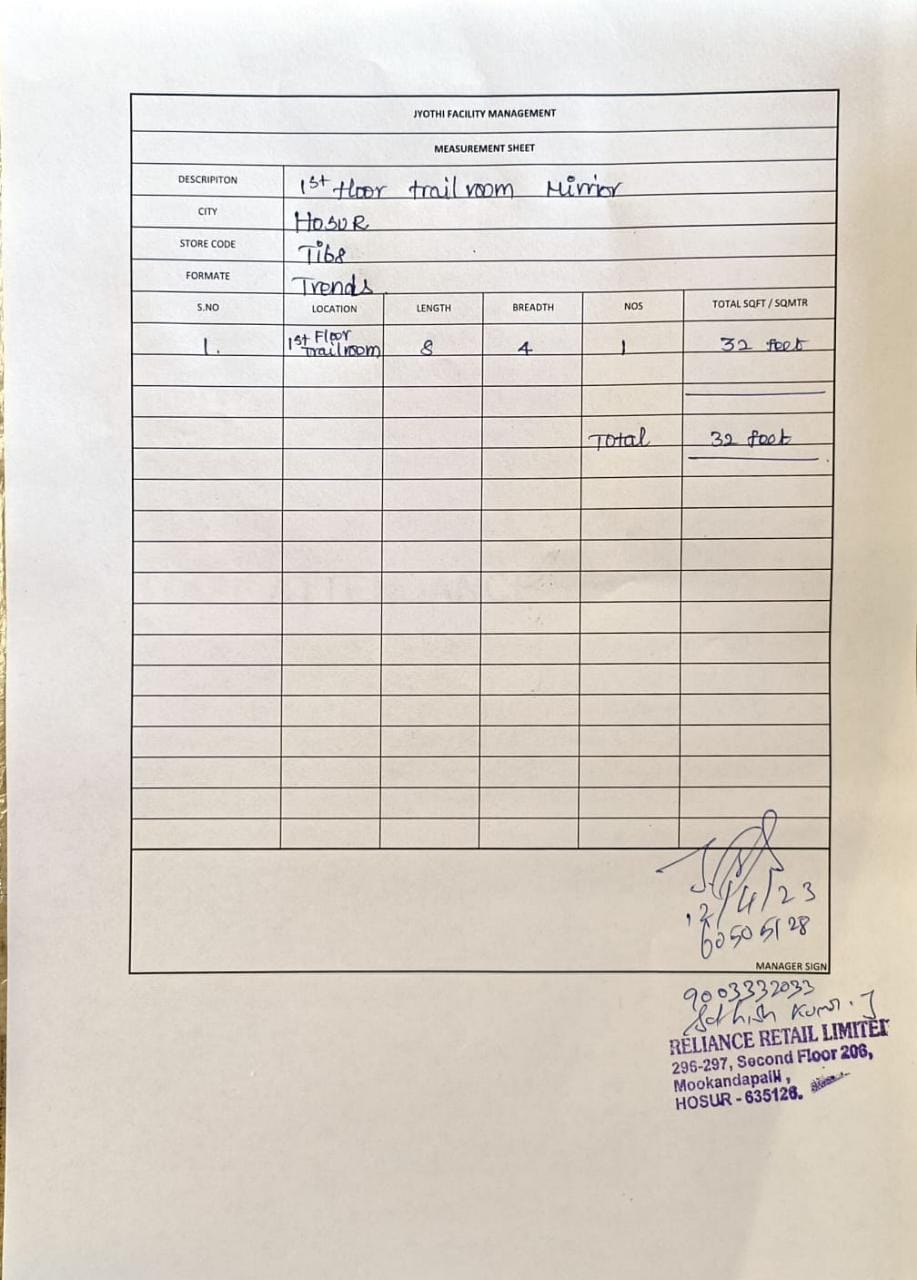 JYOTHI FACILITY MANAGEMENT
MEASUREMENT SHEET
DESCRIPITON 1st floor trail room Mirrior
CITY HOSUR
STORE CODE Ti68
FORMATE Trends
S.NO LOCATION LENGTH BREADTH NOS TOTAL SQFT / SQMTR
1. 1st Floor Trail room 8 4 1 32 feet
Total 32 feet
12/4/23
60505128
MANAGER SIGN
9003332033
Sathish Kumar. J
RELIANCE RETAIL LIMITED
296-297, Second Floor 206,
Mookandapalli,
HOSUR - 635126.